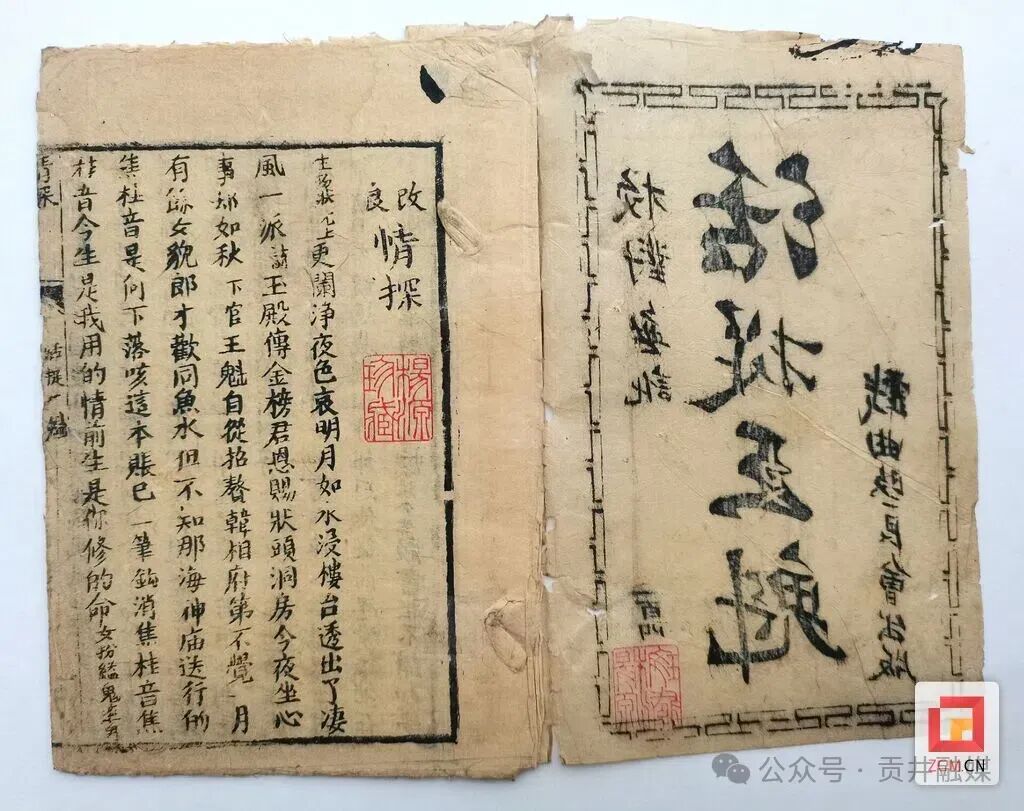 戲曲改良會出版
活捉王魁
校對無訛
改良
情探
上更闌淨夜色哀明月如水浸樓台透出了凄
風一派詩玉殿傳金榜君恩賜狀頭洞房今夜坐心
事却如秋下官王魁自從招贅韓相府第不覺一月
有餘女貌郎才歡同魚水但不知那海神庙送行的
焦桂音是何下落咳這本賬已一筆鈎消焦桂音焦
桂音今生是我用的情前生是你修的命女扮縊鬼
情探
楊源
珍藏
公众号·贡井融媒
ZGM.CN